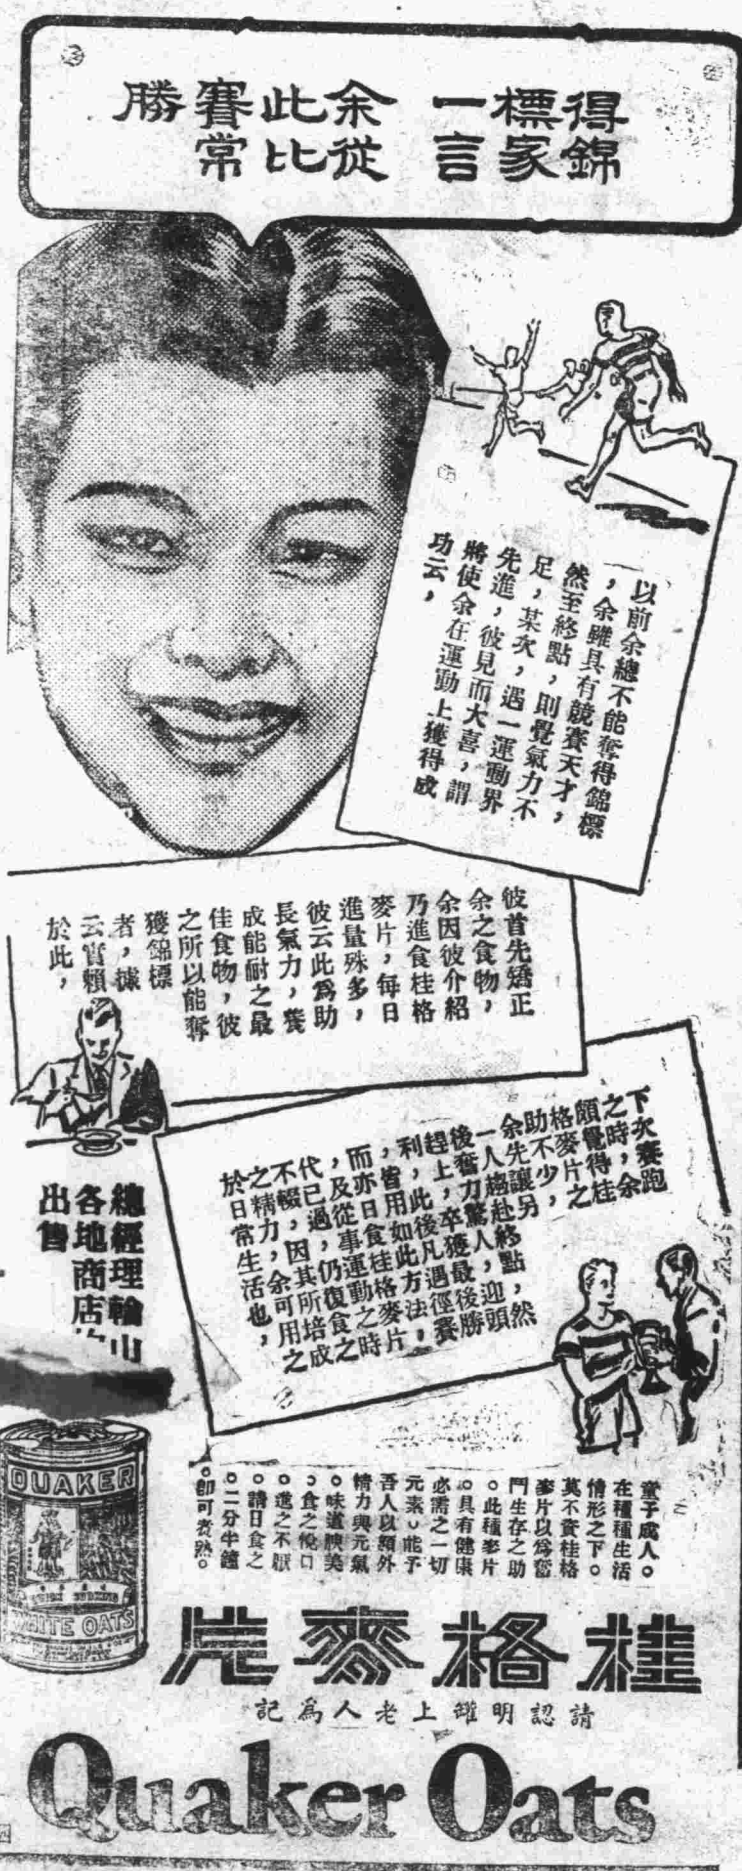 得錦
標家
一言
余從
此比
賽常
勝
以前余總不能奪得錦標
，余雖具有競賽天才，
然至終點，則覺氣力不
足，某次，遇一運動界
先進，彼見而大喜，謂
將使余在運動上獲得成
功云，
彼首先矯正
余之食物，
余因彼介紹
乃進食桂格
麥片，每日
進量殊多，
彼云此爲助
長氣力，養
成能耐之最
佳食物，彼
之所以能奪
獲錦標
者，據
云實賴
於此，
下次賽跑
之時，余
頗覺得桂
格麥片之
助不少，
余先讓另
一人趨赴終點，然
後奮力驚人，迎頭
趕上，卒獲最後勝
利，此後凡遇徑賽
，皆用如此方法，
而亦日食桂格麥片
，及從事運動之時
代已過，仍復食之
不輟，因其所培成
之精力，余可用之
於日常生活也，
總經理輪山
各地商店
出售
童子成人。
在種種生活
情形之下。
莫不資桂格
麥片以爲奮
鬥生存之助
。此種麥片
。具有健康
必需之一切
元素。能予
吾人以額外
精力與元氣
。味道腴美
。食之悅口
。進之不厭
。請日食之
。二分半鐘
。卽可煮熟。
QUAKER
WHITE OATS
桂格麥片
請認明罐上老人爲記
Quaker Oats